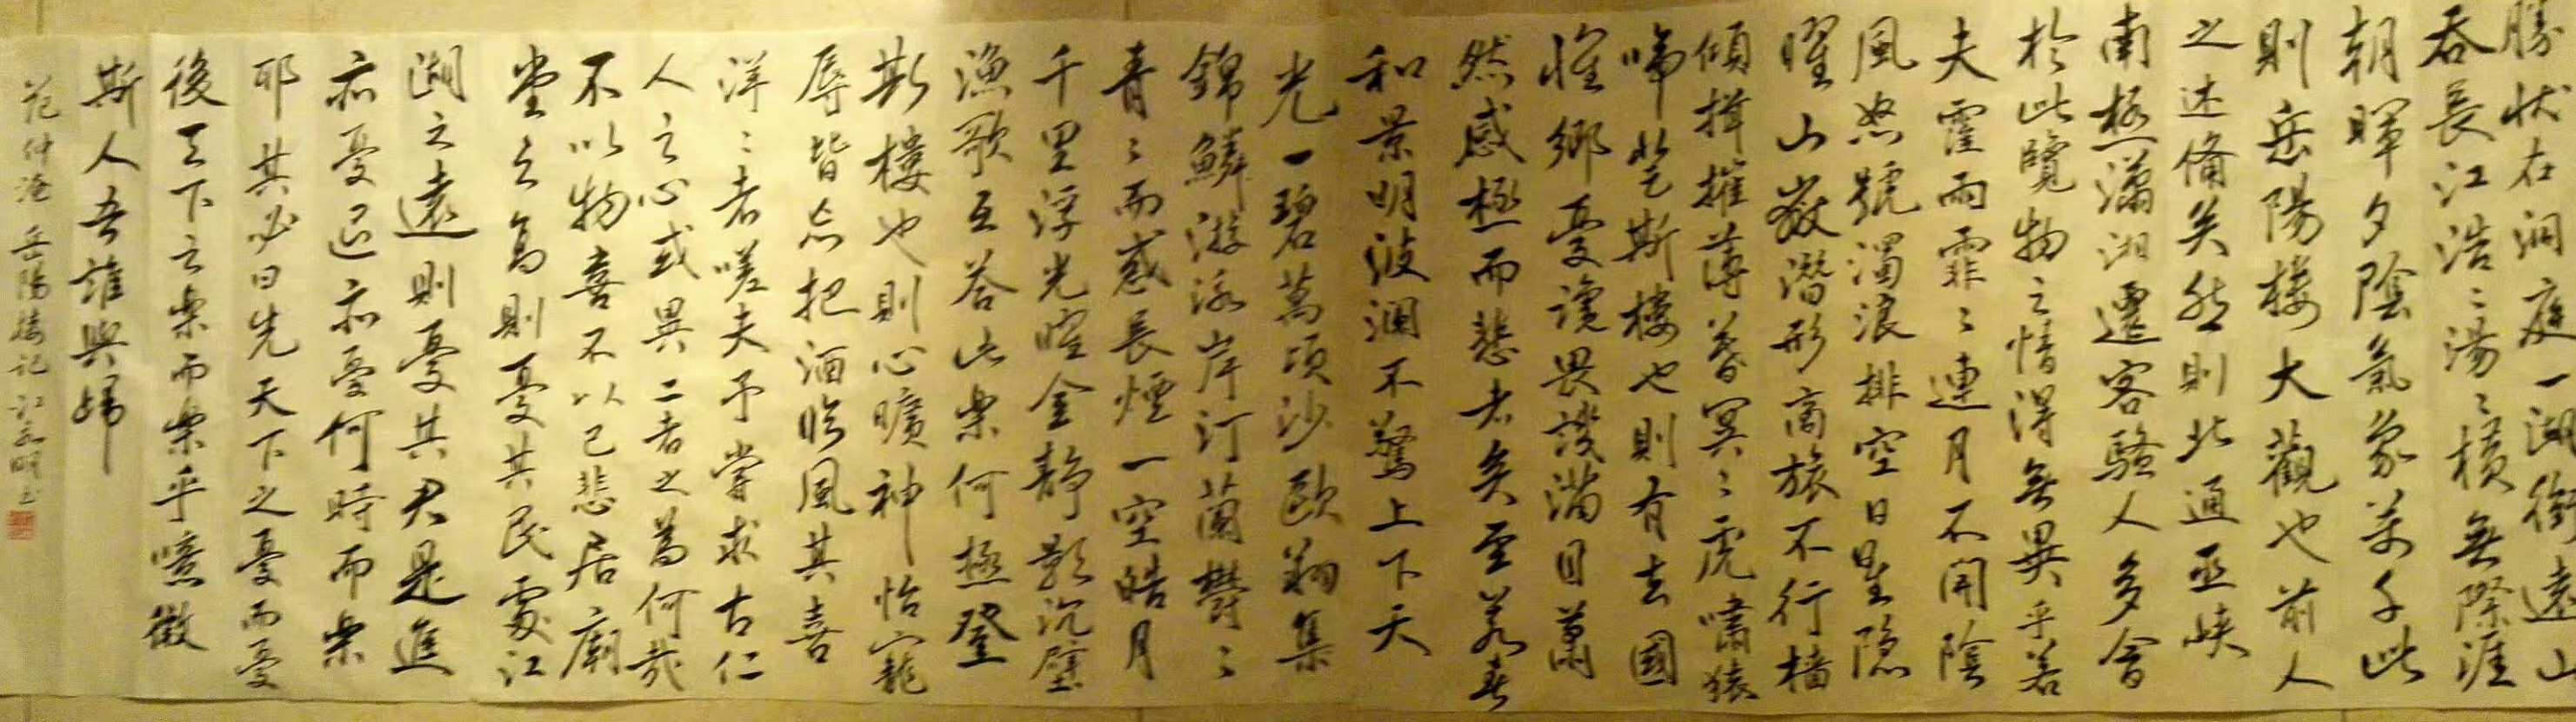 勝状在洞庭一湖銜遠山
吞長江浩〻湯〻橫無際涯
朝暉夕陰氣象萬千此
則岳陽樓大觀也前人
之述備矣然則北通巫峽
南極瀟湘遷客騷人多會
於此覽物之情得無異乎若
夫霪雨霏〻連月不開陰
風怒號濁浪排空日星隱
曜山嶽潛形商旅不行檣
傾楫摧薄暮冥〻虎嘯猿
啼登斯樓也則有去國
懷鄉憂讒畏譏滿目蕭
然感極而悲者矣至若春
和景明波瀾不驚上下天
光一碧萬頃沙鷗翔集
錦鱗游泳岸汀蘭鬱〻
青〻而或長煙一空皓月
千里浮光耀金靜影沉璧
漁歌互答此樂何極登
斯樓也則心曠神怡寵
辱皆忘把酒臨風其喜
洋〻者嗟夫予嘗求古仁
人之心或異二者之為何哉
不以物喜不以己悲居廟
堂之高則憂其民處江
湖之遠則憂其君是進
亦憂退亦憂何時而樂
耶其必曰先天下之憂而憂
後天下之樂而樂乎噫微
斯人吾誰與歸
范仲淹岳陽樓記